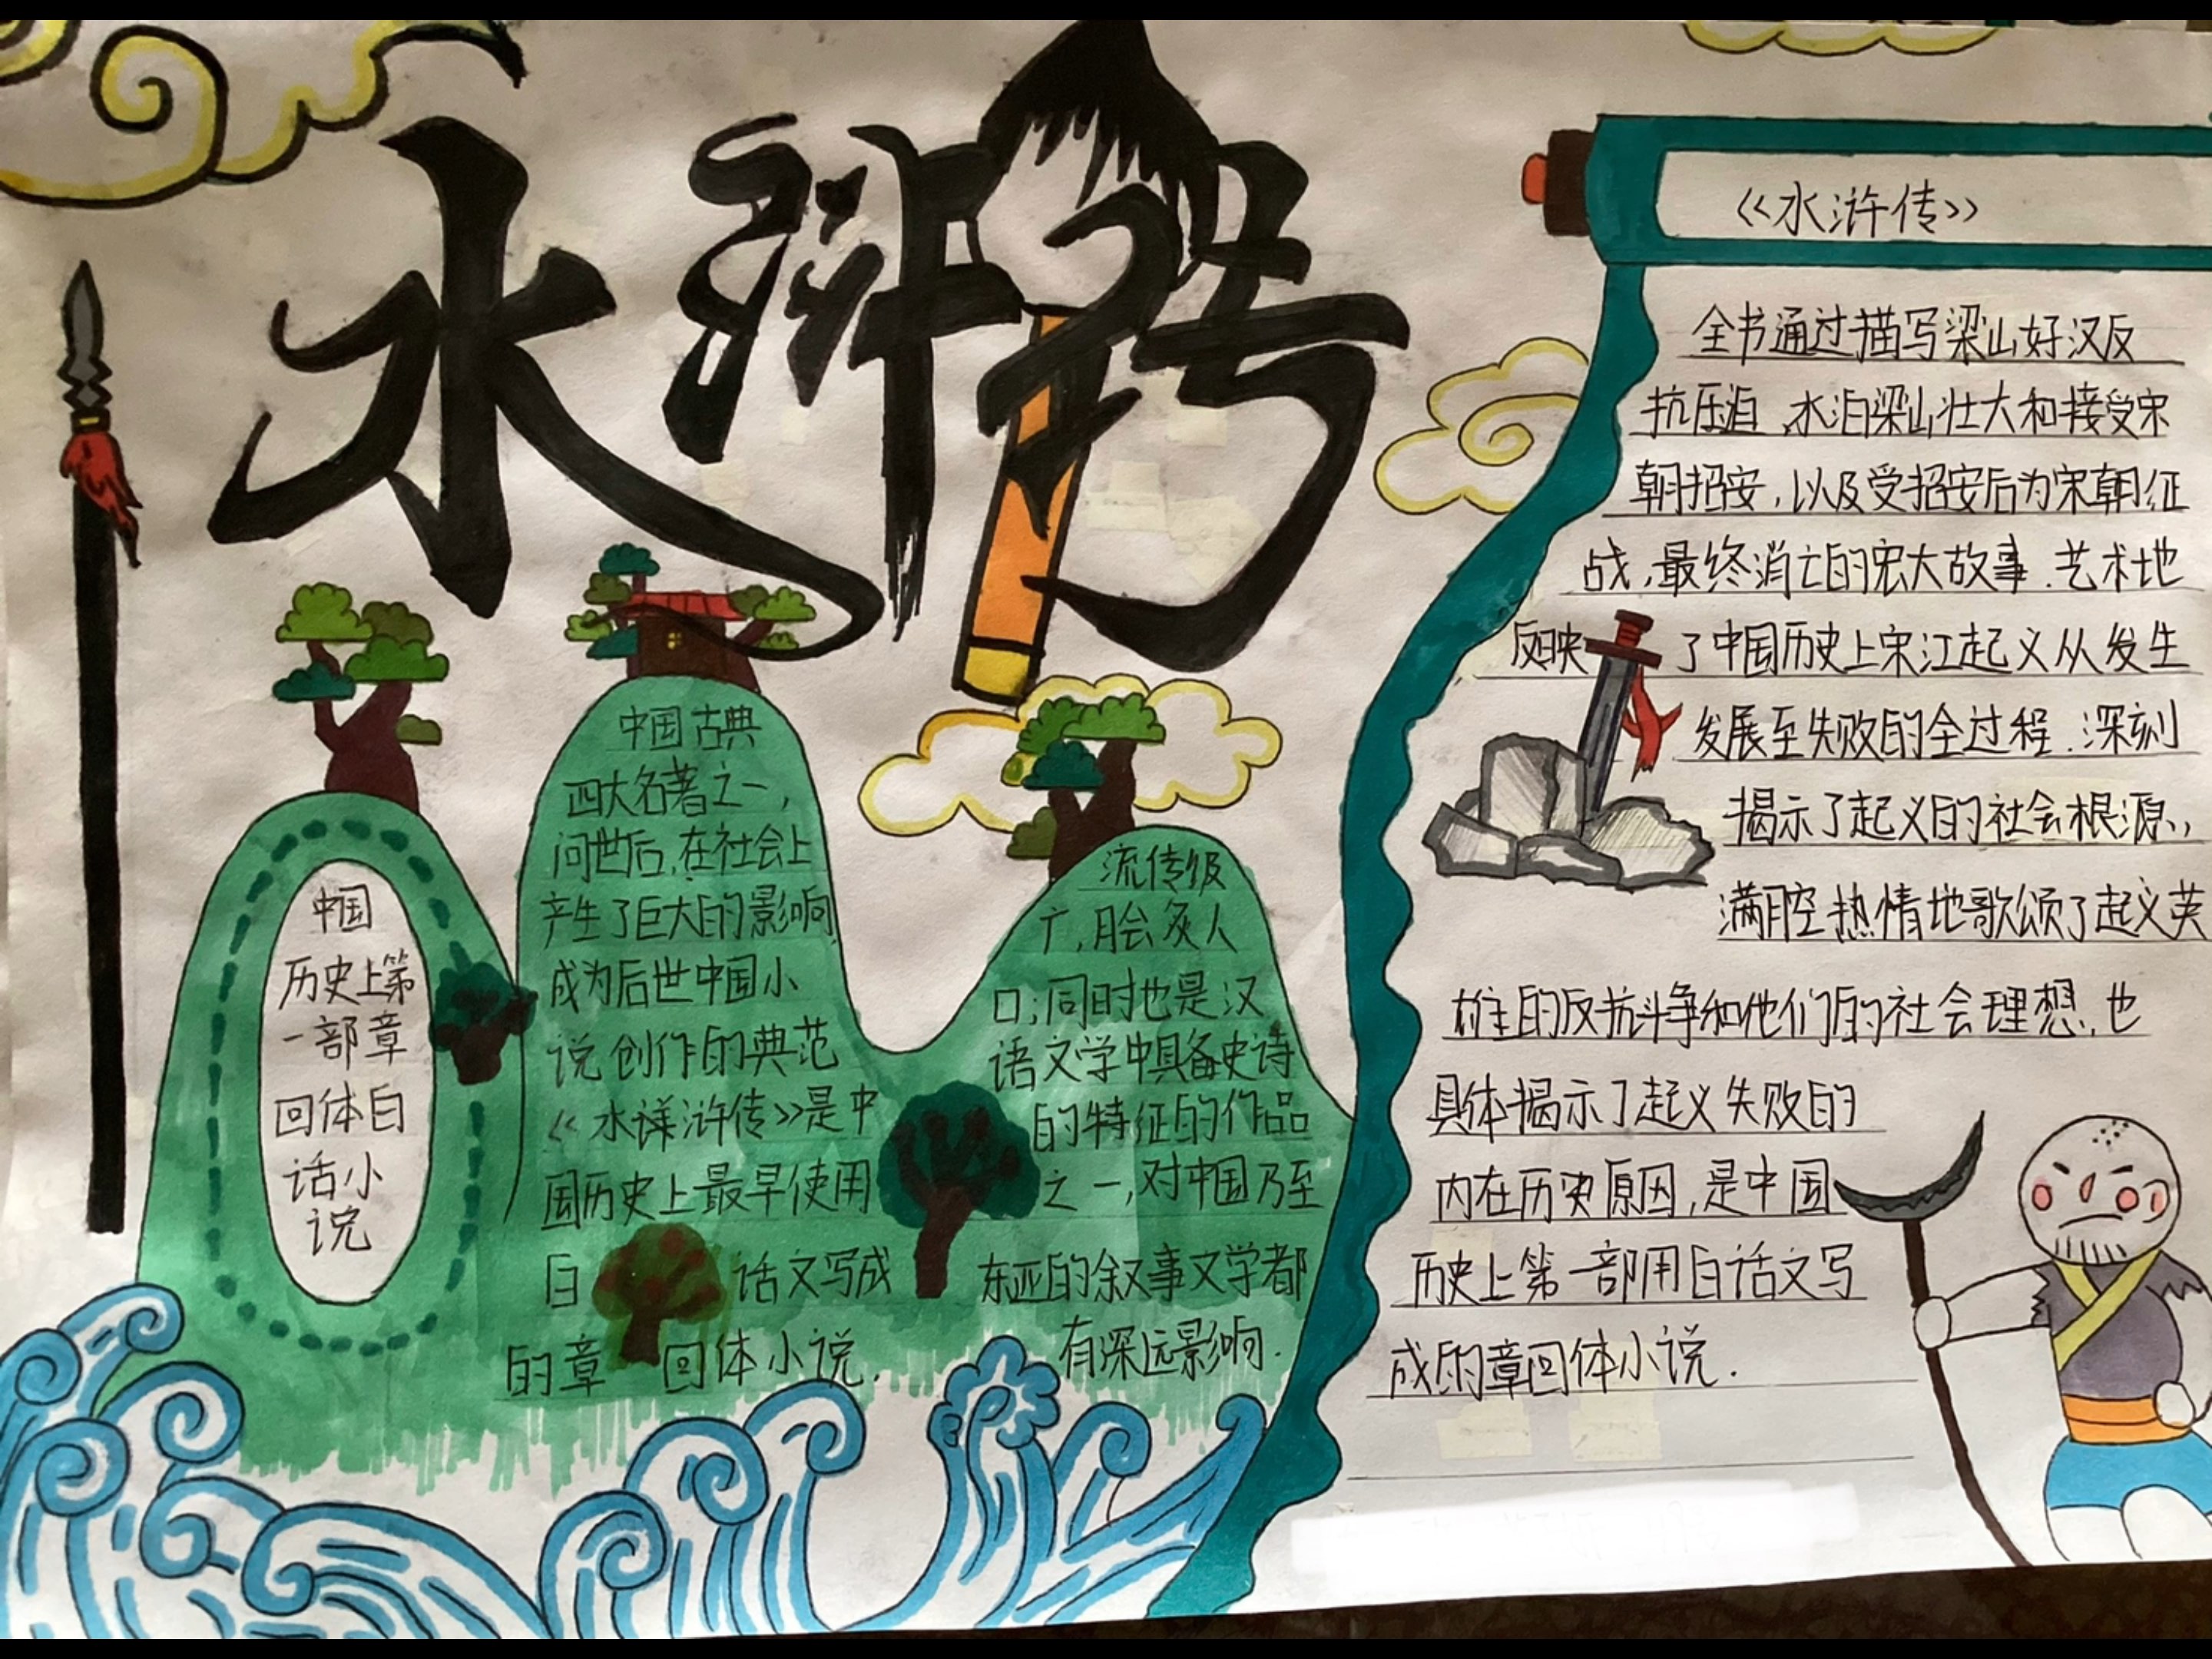 水浒传
中国
历史上第
一部章
回体白
话小
说
中国古典
四大名著之一,
问世后,在社会上
产生了巨大的影响,
成为后世中国小
说创作的典范
《水浒传》是中
国历史上最早使用
白话文写成
的章回体小说.
流传极
广,脍炙人
口;同时也是汉
语文学中具备史诗
的特征的作品
之一,对中国乃至
东亚的叙事文学都
有深远影响.
《水浒传》
全书通过描写梁山好汉反
抗压迫、水泊梁山壮大和接受宋
朝招安,以及受招安后为宋朝征
战,最终消亡的宏大故事.艺术地
反映了中国历史上宋江起义从发生
发展至失败的全过程.深刻
揭示了起义的社会根源,
满腔热情地歌颂了起义英
雄的反抗斗争和他们的社会理想,也
具体揭示了起义失败的
内在历史原因,是中国
历史上第一部用白话文写
成的章回体小说.